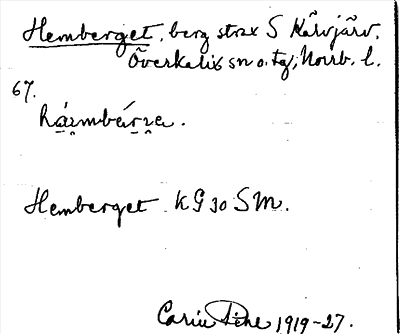 Hemberget, berg strax S Närvjärv.
Överkalix sn o. tg; Norrb. l.
67.
Hemberget KG 30 SM.
Carin Pihl 1919-27.